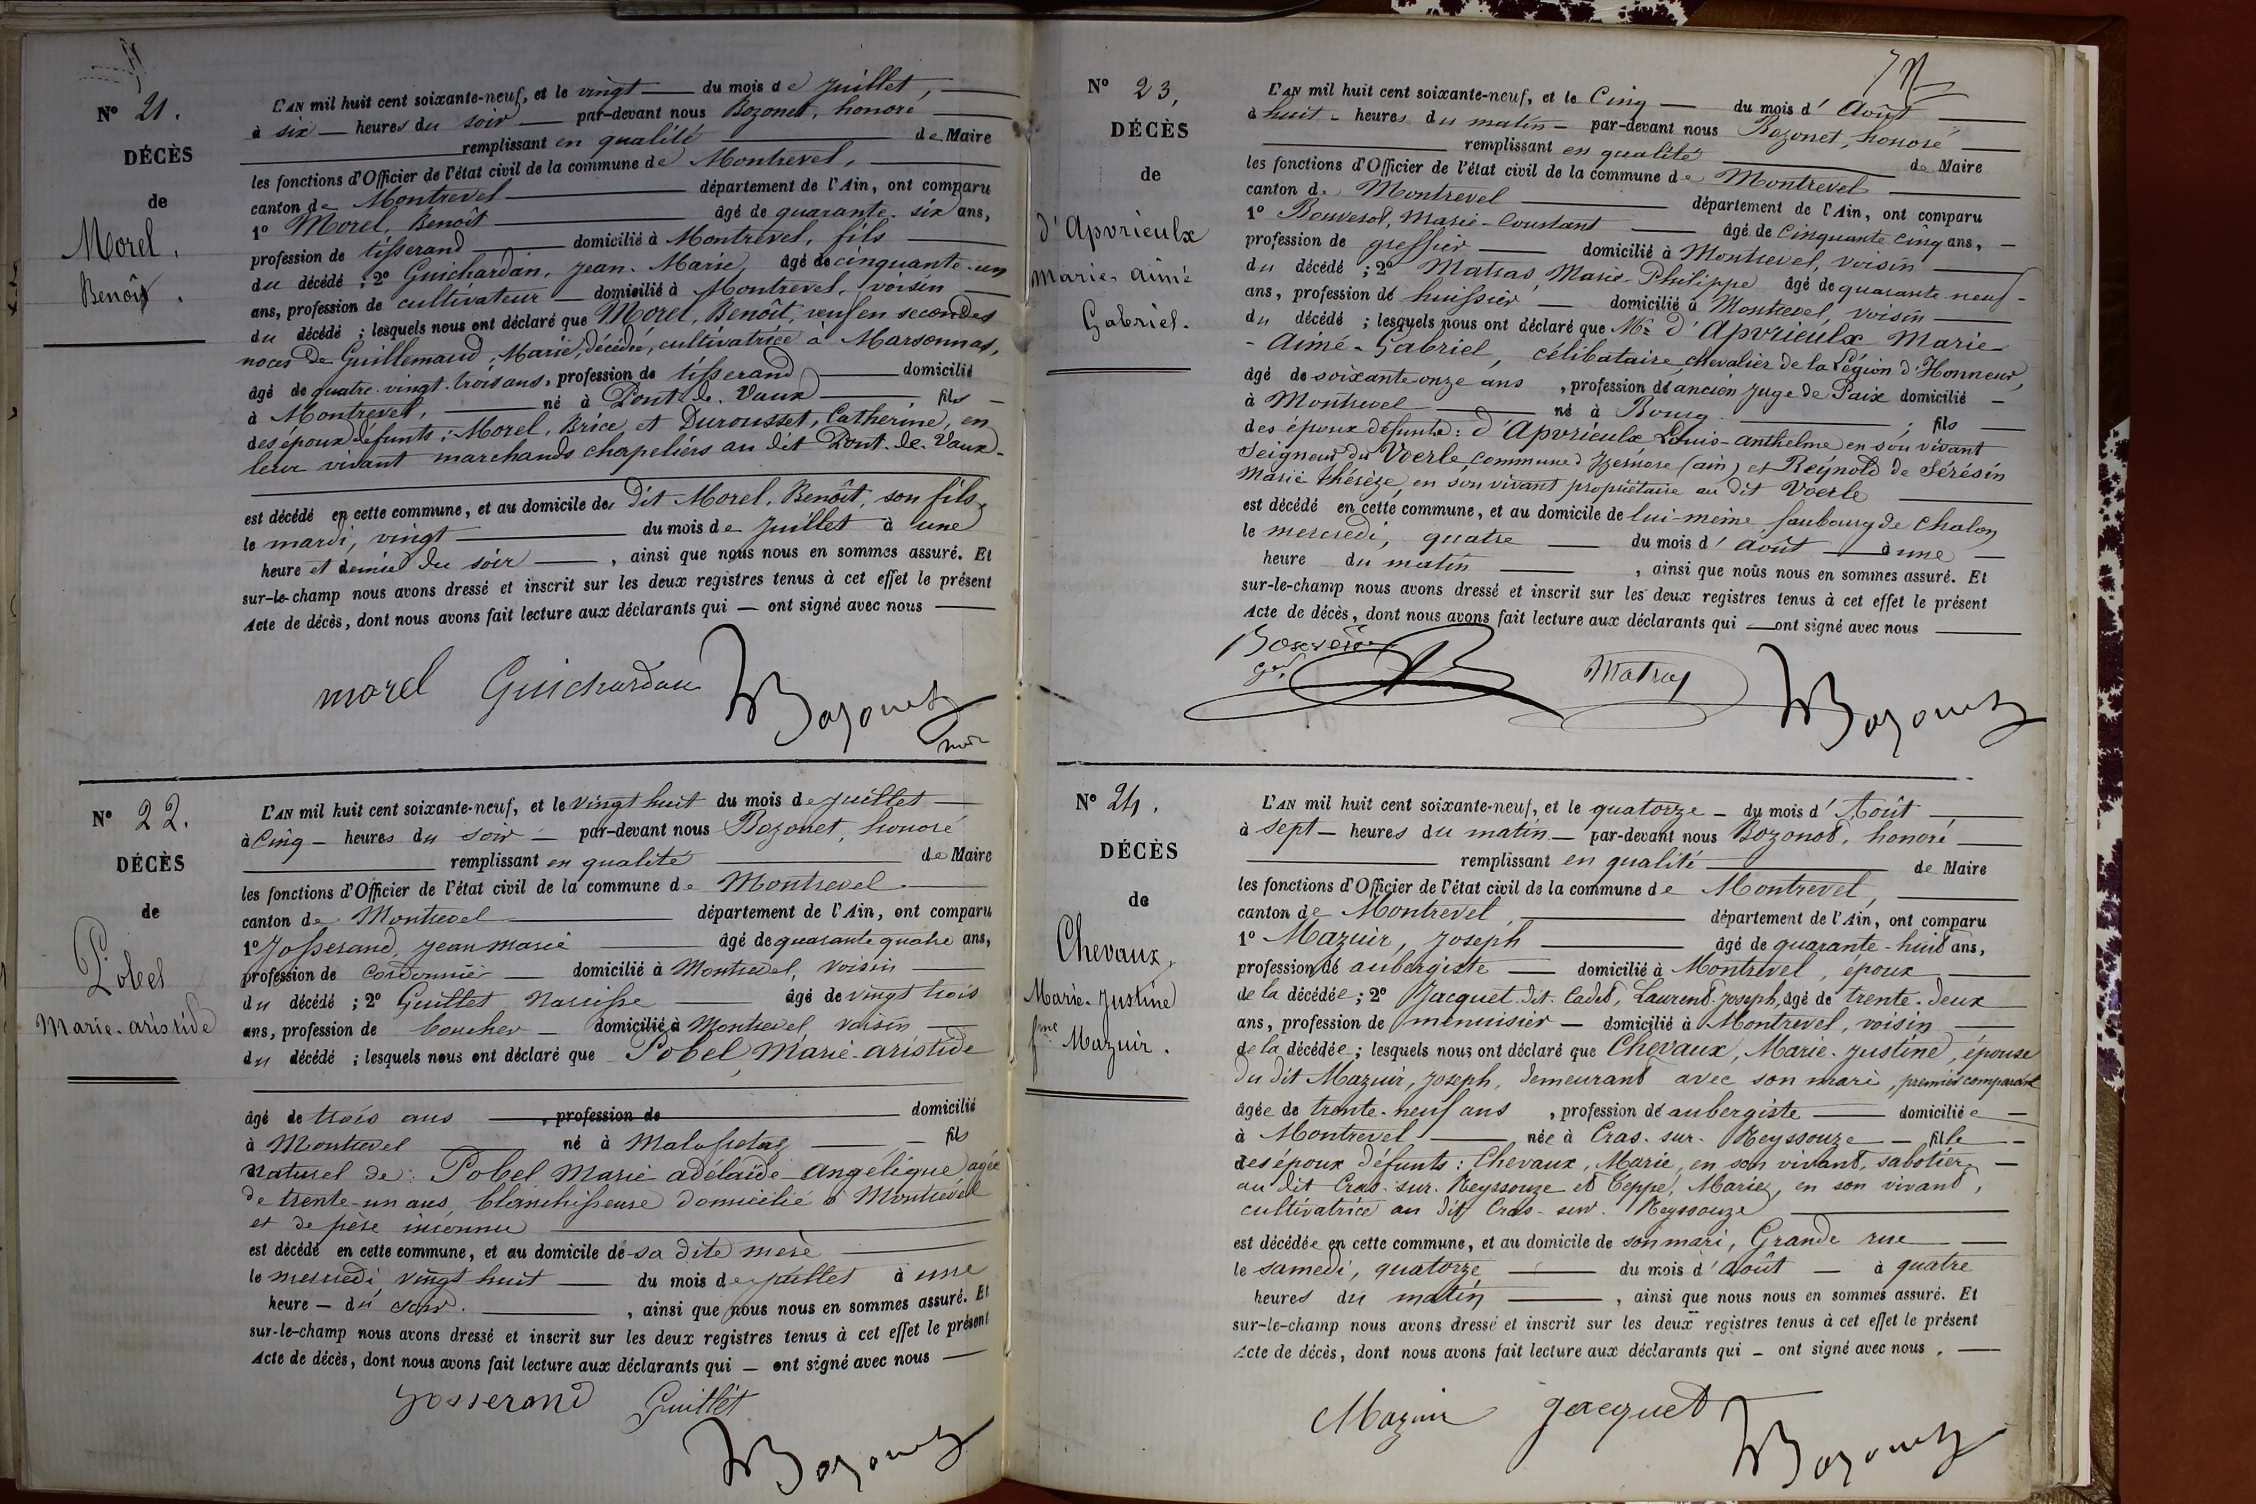 Nº 21.
DÉCÈS
de
Morel.
Benoît.
L'AN mil huit cent soixante-neuf, et le vingt du mois de juillet,
à six heures du soir par-devant nous Bozonet, honoré
remplissant en qualité de Maire
les fonctions d'Officier de l'état civil de la commune de Montrevel,
canton de Montrevel département de l'Ain, ont comparu
1º Morel, Benoît âgé de quarante-six ans,
profession de tisserand domicilié à Montrevel, fils
du décédé ; 2º Guichardan, Jean-Marie, âgé de cinquante-un
ans, profession de cultivateur domicilié à Montrevel, voisin
du décédé ; lesquels nous ont déclaré que Morel, Benoît, veuf en secondes
noces de Guillemaud, Marie, décédée, cultivatrice à Marsonnas,
âgé de quatre-vingt-trois ans, profession de tisserand domicilié
à Montrevel, né à Pont-de-Vaux fils
des époux défunts : Morel, Brice et Durousset, Catherine, en
leur vivant marchands chapeliers au dit Pont-de-Vaux.
est décédé en cette commune, et au domicile de dit Morel, Benoît, son fils,
le mardi, vingt du mois de juillet à une
heure et demie du soir, ainsi que nous nous en sommes assuré. Et
sur-le-champ nous avons dressé et inscrit sur les deux registres tenus à cet effet le présent
Acte de décès, dont nous avons fait lecture aux déclarants qui ont signé avec nous
morel Guichardan Bozonet
Nº 22.
DÉCÈS
de
Pobel
Marie-aristide
L'AN mil huit cent soixante-neuf, et le vingt huit du mois de juillet
à cinq heures du soir par-devant nous Bozonet, honoré
remplissant en qualité de Maire
les fonctions d'Officier de l'état civil de la commune de Montrevel
canton de Montrevel département de l'Ain, ont comparu
1º Josserand, jean marie âgé de quarante quatre ans,
profession de cordonnier domicilié à Montrevel, voisin
du décédé ; 2º Guillet Narcisse âgé de vingt trois
ans, profession de boucher domicilié à Montrevel, voisin
du décédé ; lesquels nous ont déclaré que Pobel, Marie-aristide
âgé de trois ans, profession de domicilié
à Montrevel né à Malafretaz fils
naturel de : Pobel Marie adélaïde angélique agée
de trente-un ans, blanchisseuse domicilié à Montrevel
et de père inconnu
est décédé en cette commune, et au domicile de sa dite mère
le mercredi vingt huit du mois de juillet à une
heure du soir, ainsi que nous nous en sommes assuré. Et
sur-le-champ nous avons dressé et inscrit sur les deux registres tenus à cet effet le présent
Acte de décès, dont nous avons fait lecture aux déclarants qui ont signé avec nous
Josserand Guillet
Bozonet
Nº 23,
DÉCÈS
de
d'Apvrieulx
Marie-aimé
Gabriel.
L'AN mil huit cent soixante-neuf, et le Cinq du mois d'Août
à huit heures du matin par-devant nous Bozonet, honoré
remplissant en qualité de Maire
les fonctions d'Officier de l'état civil de la commune de Montrevel
canton de Montrevel département de l'Ain, ont comparu
1º Bouverot, Marie-Constant âgé de cinquante cinq ans,
profession de greffier domicilié à Montrevel, voisin
du décédé ; 2º Matras, Marie-Philippe âgé de quarante neuf
ans, profession de huissier domicilié à Montrevel, voisin
du décédé ; lesquels nous ont déclaré que Mr d'Apvrieulx Marie
-Aimé-Gabriel, célibataire, chevalier de la Légion d'Honneur,
âgé de soixante onze ans, profession de ancien Juge de Paix domicilié
à Montrevel né à Bourg ; fils
des époux défunts : d'Apvrieulx Louis-anthelme en son vivant
Seigneur du Voerle, commune d'Izernore (ain) et Reynold de Sérésin
Marie thérèze, en son vivant propriétaire au dit Voerle
est décédé en cette commune, et au domicile de lui-même faubourg de Chalon
le mercredi, quatre du mois d'août à une
heure du matin, ainsi que nous nous en sommes assuré. Et
sur-le-champ nous avons dressé et inscrit sur les deux registres tenus à cet effet le présent
Acte de décès, dont nous avons fait lecture aux déclarants qui ont signé avec nous
Matras Bozonet
Nº 24.
DÉCÈS
de
Chevaux,
Marie-Justine
fme Mazuir.
L'AN mil huit cent soixante-neuf, et le quatorze du mois d'Août
à sept heures du matin par-devant nous Bozonet, honoré
remplissant en qualité de Maire
les fonctions d'Officier de l'état civil de la commune de Montrevel,
canton de Montrevel, département de l'Ain, ont comparu
1º Mazuir, Joseph âgé de quarante-huit ans,
profession de aubergiste domicilié à Montrevel, époux
de la décédée ; 2º Jacquet dit Cadet, Laurent-Joseph, âgé de trente-deux
ans, profession de menuisier domicilié à Montrevel, voisin
de la décédée ; lesquels nous ont déclaré que Chevaux, Marie-Justine, épouse
du dit Mazuir, Joseph, demeurant avec son mari, premier comparant
âgée de trente-neuf ans, profession de aubergiste domiciliée
à Montrevel née à Cras-sur-Reyssouze fille
des époux défunts : Chevaux, Marie, en son vivant, sabotier
au dit Cras-sur-Reyssouze et Teppe, Marie, en son vivant,
cultivatrice au dit Cras-sur-Reyssouze
est décédée en cette commune, et au domicile de son mari, Grande rue
le samedi, quatorze du mois d'août à quatre
heures du matin, ainsi que nous nous en sommes assuré. Et
sur-le-champ nous avons dressé et inscrit sur les deux registres tenus à cet effet le présent
Acte de décès, dont nous avons fait lecture aux déclarants qui ont signé avec nous.
Mazuir Jacquet Bozonet